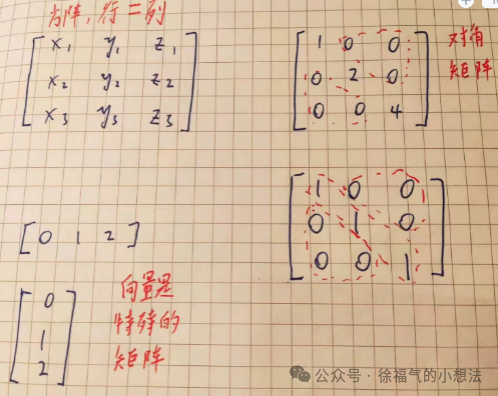 方阵，行=列
x₁ y₁ z₁
x₂ y₂ z₂
x₃ y₃ z₃
1 0 0
0 2 0
0 0 4
对角
矩阵
1 0 0
0 1 0
0 0 1
[ 0 1 2 ]
0
1
2
向量是
特殊的
矩阵
公众号 · 徐福气的小想法